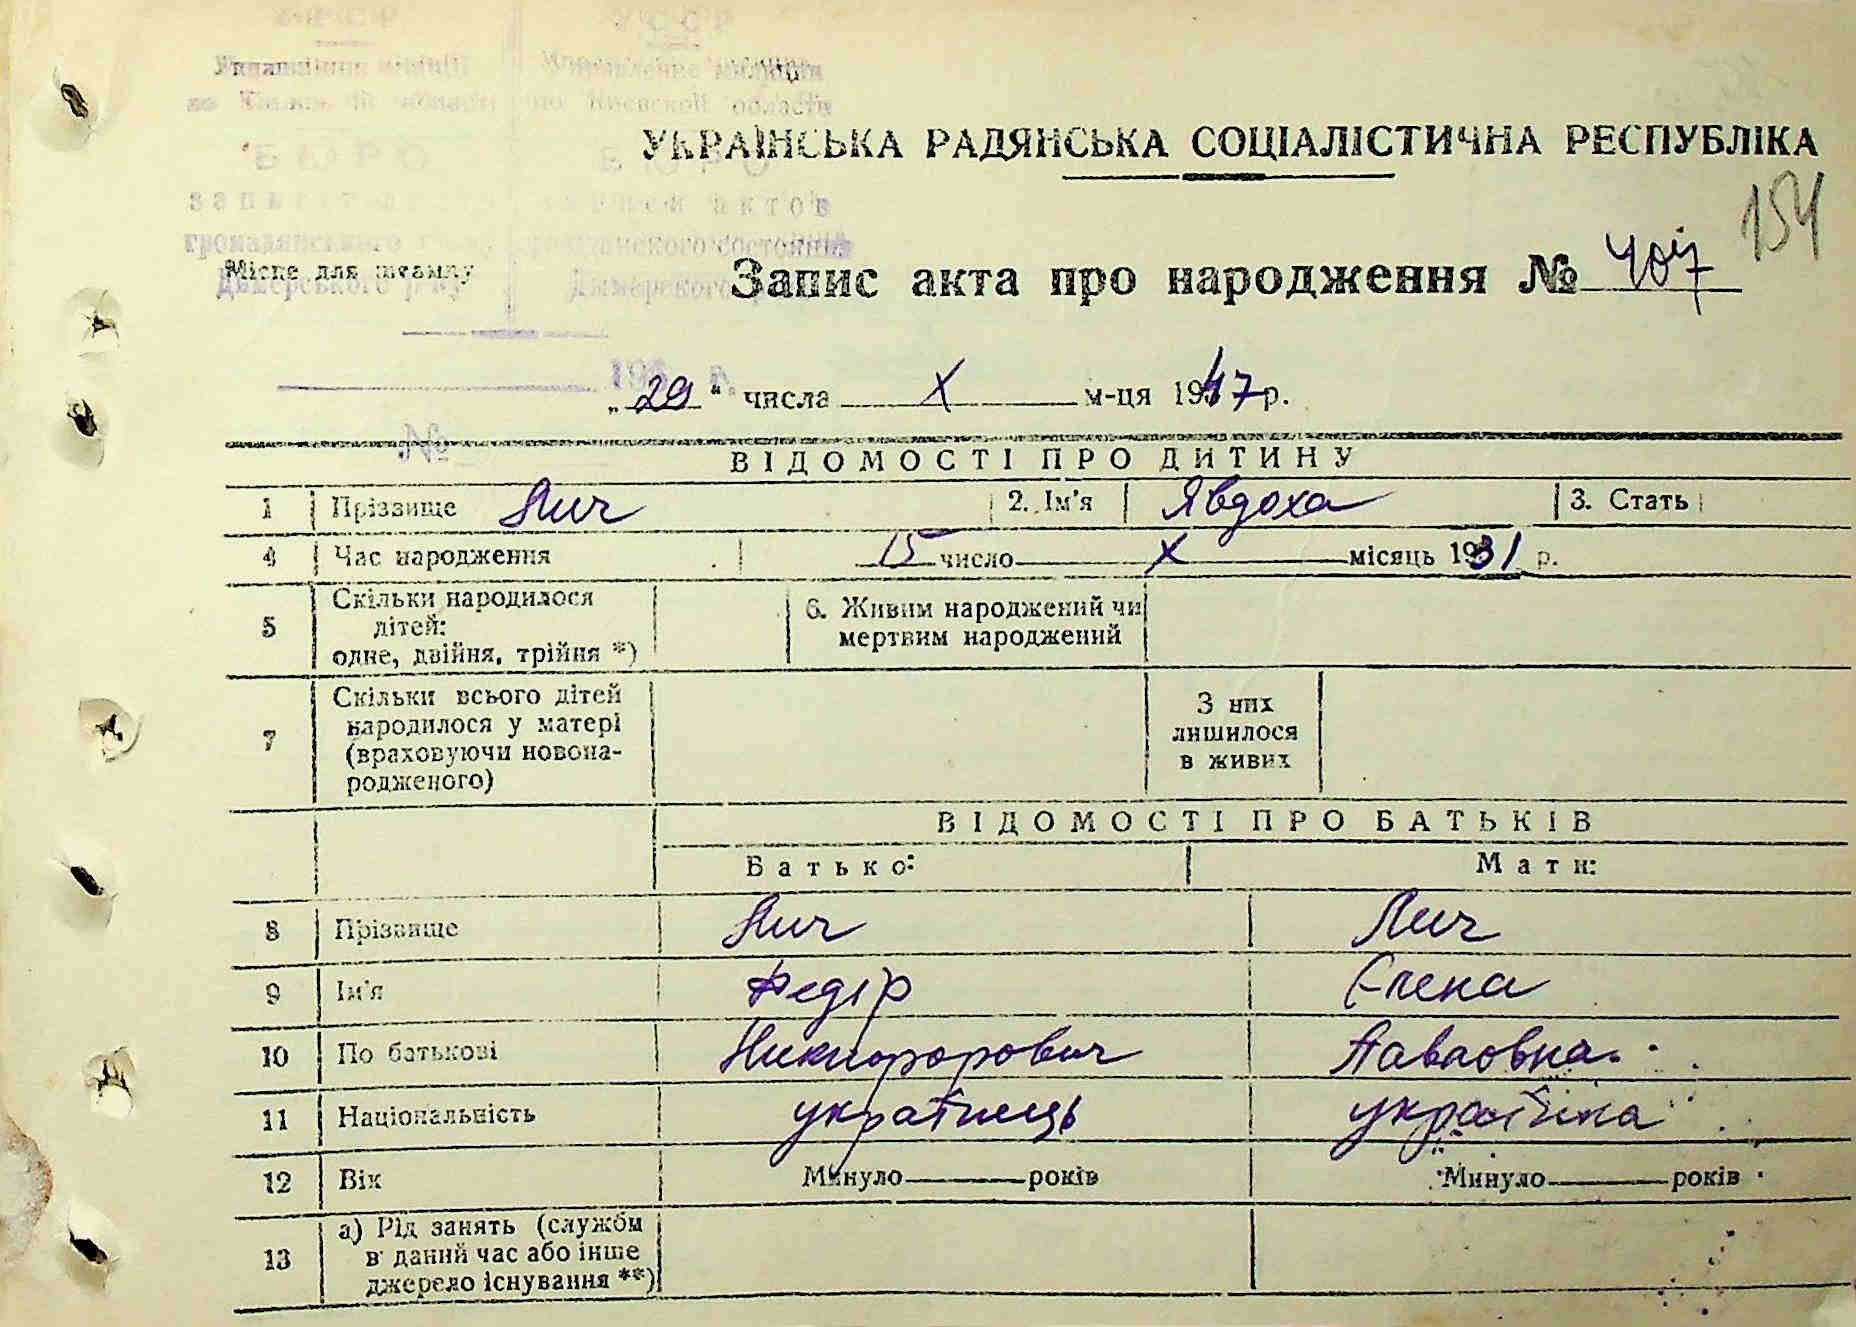 УССР
Управління міліції Управление милиции
по Київській області по Киевской области
БЮРО БЮРО
УКРАЇНСЬКА РАДЯНСЬКА СОЦІАЛІСТИЧНА РЕСПУБЛІКА
154
записи актов
громадянського стану гражданского состояния
Місце для штампу
Димерського р-ну Дымерского
Запис акта про народження № 407
195 г.
„29“ числа X м-ця 1947 р.
№
ВІДОМОСТІ ПРО ДИТИНУ
1 Прізвище Лич 2. Ім'я Явдоха 3. Стать
4 Час народження 15 число X місяць 1931 р.
5 Скільки народилося дітей: одне, двійня, трійня *) 6. Живим народжений чи мертвим народжений
7 Скільки всього дітей народилося у матері (враховуючи новонародженого) З них лишилося в живих
ВІДОМОСТІ ПРО БАТЬКІВ
Батько: Мати:
8 Прізвище Лич Лич
9 Ім'я Федір Єлена
10 По батькові Никифорович Павловна
11 Національність українець українка
12 Вік Минуло років Минуло років
13 а) Рід занять (служби в даний час або інше джерело існування **)